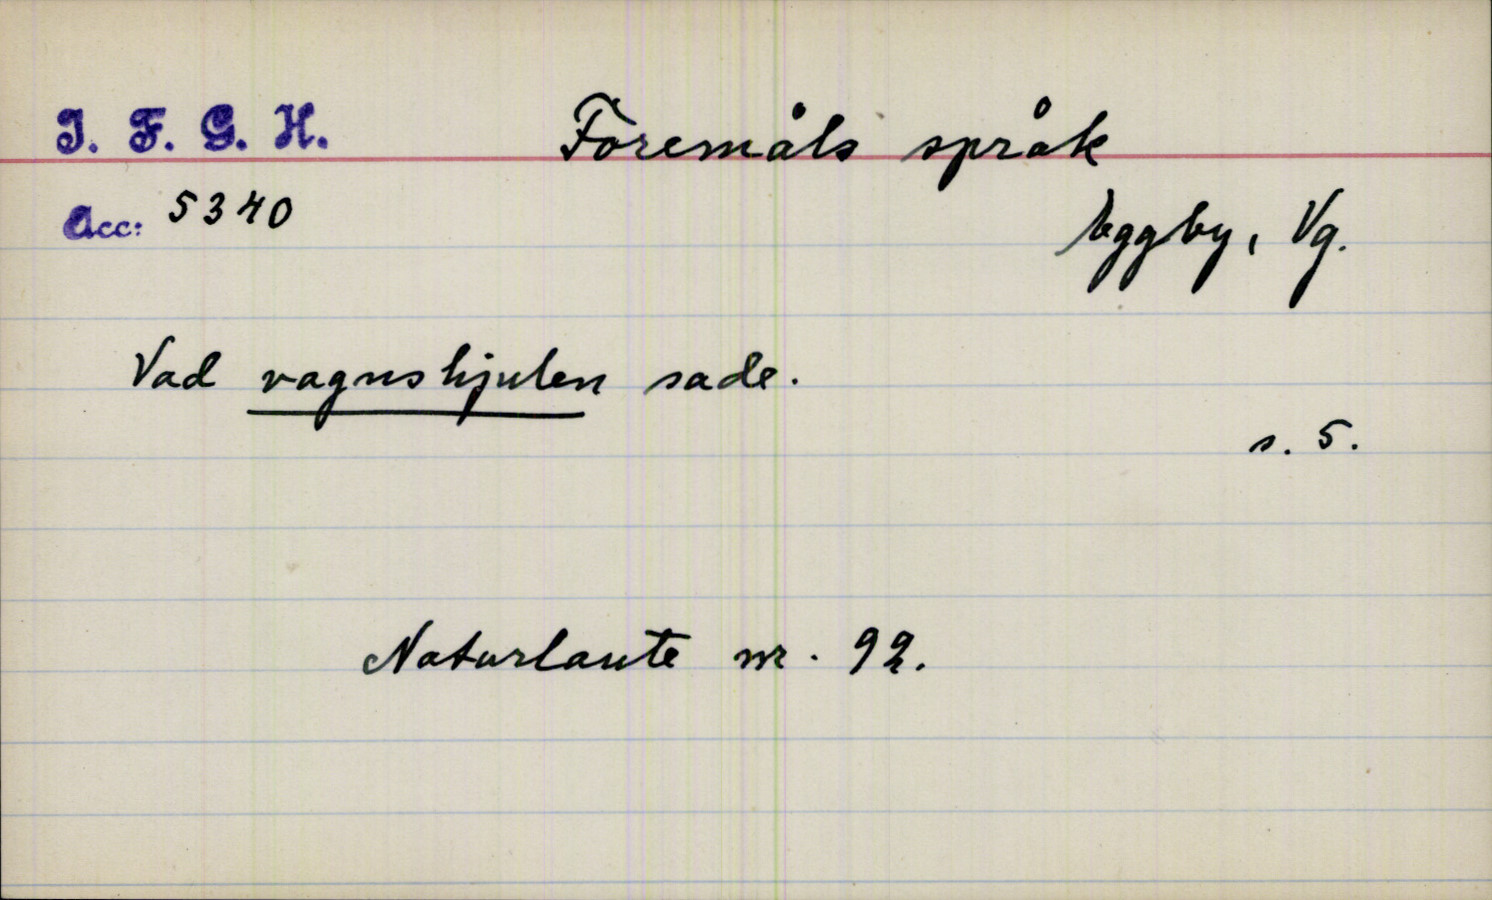 I. F. G. H.
Föremåls språk
Acc: 5340
Vg.
Vad vagnshjulen sade.
s. 5.
Naturlaute nr. 92.